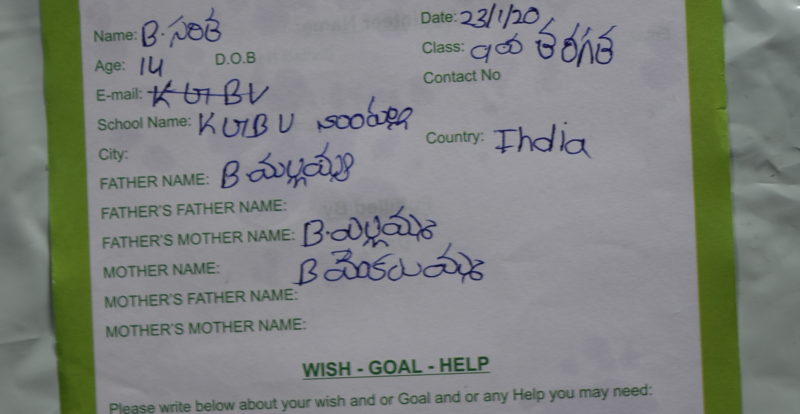 Name: B. సరిత Date: 23/1/20
Age: 14 D.O.B Class: 9వ తరగతి
E-mail: K G B V Contact No
School Name: K G B V
City: Country: India
FATHER NAME: B మల్లయ్య
FATHER'S FATHER NAME:
FATHER'S MOTHER NAME: B. ఎల్లమ్మ
MOTHER NAME: B
MOTHER'S FATHER NAME:
MOTHER'S MOTHER NAME:
WISH - GOAL - HELP
Please write below about your wish and or Goal and or any Help you may need: